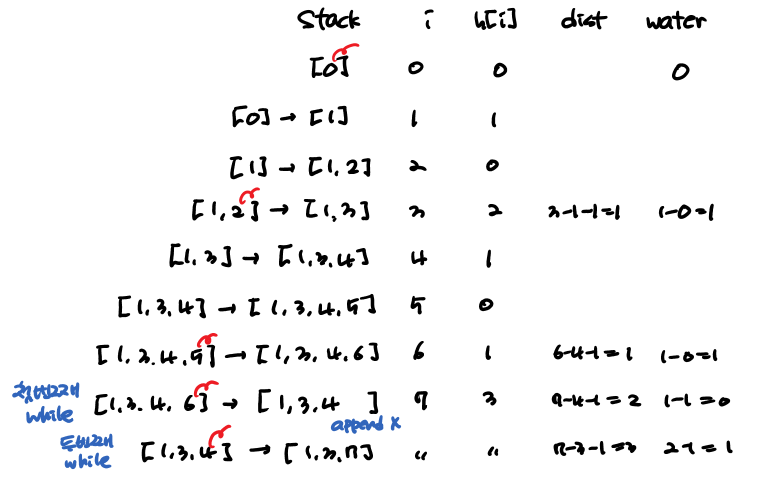 Stack i h[i] dist water
[0] 0 0 0
[0] → [1] 1 1
[1] → [1, 2] 2 0
[1, 2] → [1, 3] 3 2 3-1-1=1 1-0=1
[1, 3] → [1, 3, 4] 4 1
[1, 3, 4] → [1, 3, 4, 5] 5 0
[1, 3, 4, 5] → [1, 3, 4, 6] 6 1 6-4-1=1 1-0=1
첫번째 while [1, 3, 4, 6] → [1, 3, 4 ] 7 3 7-4-1=2 1-1=0
append x
두번째 while [1, 3, 4] → [1, 3, 7] " " 7-3-1=3 2-1=1